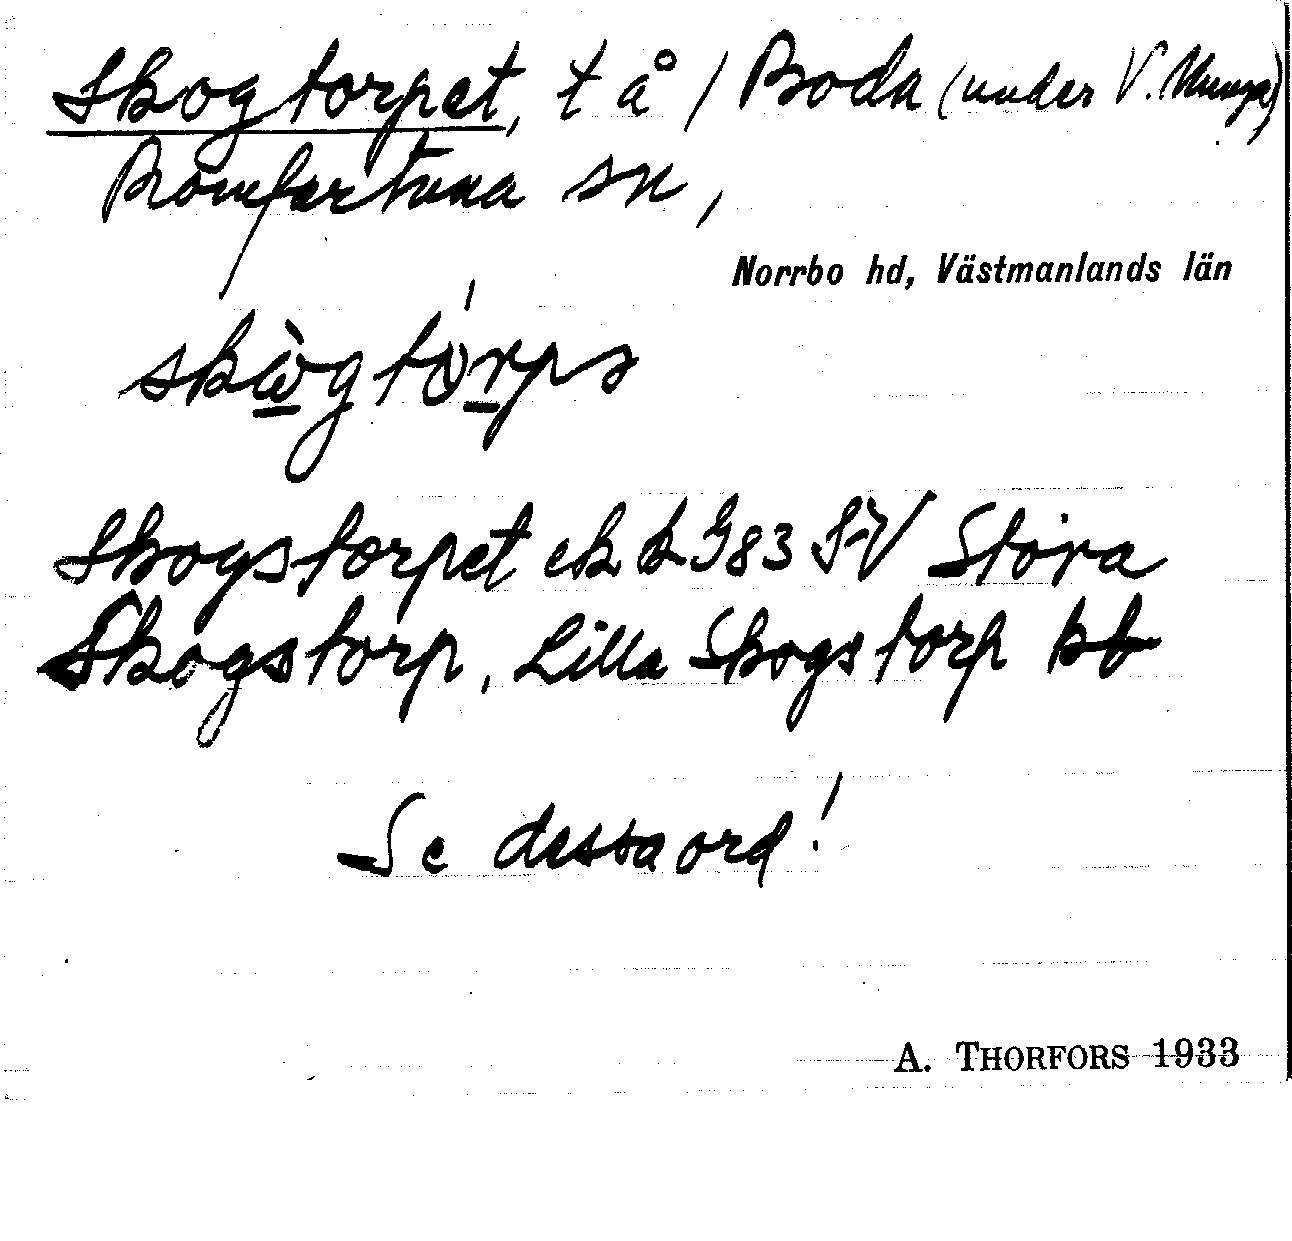 Skogtorpet, t å / Boda (under V. Munga)
Romfartuna sn,
Norrbo hd, Västmanlands län
skògtórps
Skogstorpet ek G83 SV Stora
Skogstorp, Lilla Skogstorp kb
Se dessa ord!
A. THORFORS 1933